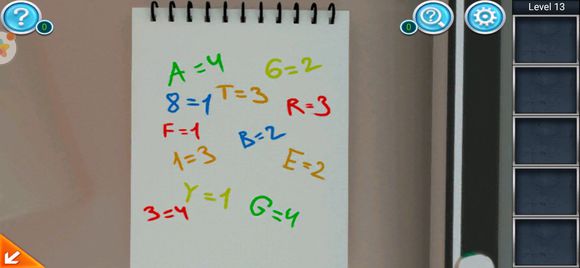 Level 13
?
0
0
A=4
6=2
8=1
T=3
R=3
F=1
B=2
1=3
E=2
Y=1
3=4
G=4